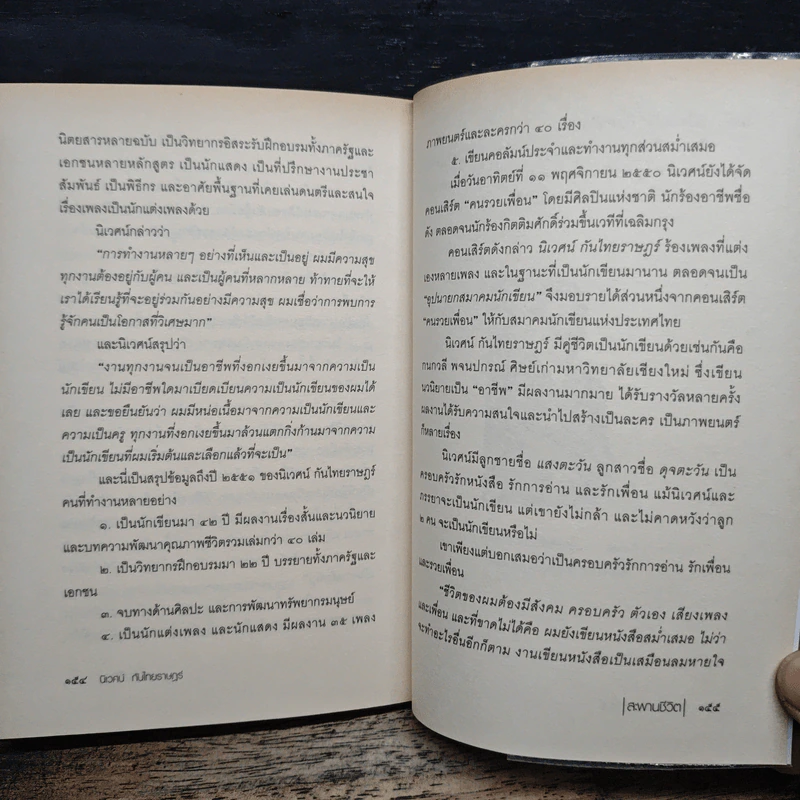 นิตยสารหลายฉบับ เป็นวิทยากรอิสระรับฝึกอบรมทั้งภาครัฐและ
เอกชนหลายหลักสูตร เป็นนักแสดง เป็นที่ปรึกษางานประชา
สัมพันธ์ เป็นพิธีกร และอาศัยพื้นฐานที่เคยเล่นดนตรีและสนใจ
เรื่องเพลงเป็นนักแต่งเพลงด้วย
นิเวศน์กล่าวว่า
"การทำงานหลายๆ อย่างที่เห็นและเป็นอยู่ ผมมีความสุข
ทุกงานต้องอยู่กับผู้คน และเป็นผู้คนที่หลากหลาย ท้าทายที่จะให้
เราได้เรียนรู้ที่จะอยู่ร่วมกันอย่างมีความสุข ผมเชื่อว่าการพบการ
รู้จักคนเป็นโอกาสที่วิเศษมาก"
และนิเวศน์สรุปว่า
"งานทุกงานจนเป็นอาชีพที่งอกเงยขึ้นมาจากความเป็น
นักเขียน ไม่มีอาชีพใดมาเบียดเบียนความเป็นนักเขียนของผมได้
เลย และขอยืนยันว่า ผมมีหน่อเนื้อมาจากความเป็นนักเขียนและ
ความเป็นครู ทุกงานที่งอกเงยขึ้นมาล้วนแตกกิ่งก้านมาจากความ
เป็นนักเขียนที่ผมเริ่มต้นและเลือกแล้วที่จะเป็น"
และนี่เป็นสรุปข้อมูลถึงปี ๒๕๕๑ ของนิเวศน์ กันไทยราษฎร์
คนที่ทำงานหลายอย่าง
๑. เป็นนักเขียนมา ๔๒ ปี มีผลงานเรื่องสั้นและนวนิยาย
และบทความพัฒนาคุณภาพชีวิตรวมเล่มกว่า ๔๐ เล่ม
๒. เป็นวิทยากรฝึกอบรมมา ๒๒ ปี บรรยายทั้งภาครัฐและ
เอกชน
๓. จบทางด้านศิลปะ และการพัฒนาทรัพยากรมนุษย์
๔. เป็นนักแต่งเพลง และนักแสดง มีผลงาน ๓๕ เพลง
๑๕๔ นิเวศน์ กันไทยราษฎร์
ภาพยนตร์และละครกว่า ๔๐ เรื่อง
๕. เขียนคอลัมน์ประจำและทำงานทุกส่วนสม่ำเสมอ
เมื่อวันอาทิตย์ที่ ๑๑ พฤศจิกายน ๒๕๕๐ นิเวศน์ยังได้จัด
คอนเสิร์ต "คนรวยเพื่อน" โดยมีศิลปินแห่งชาติ นักร้องอาชีพชื่อ
ดัง ตลอดจนนักร้องกิตติมศักดิ์ร่วมขึ้นเวทีที่เฉลิมกรุง
คอนเสิร์ตดังกล่าว นิเวศน์ กันไทยราษฎร์ ร้องเพลงที่แต่ง
เองหลายเพลง และในฐานะที่เป็นนักเขียนมานาน ตลอดจนเป็น
"อุปนายกสมาคมนักเขียน" จึงมอบรายได้ส่วนหนึ่งจากคอนเสิร์ต
"คนรวยเพื่อน" ให้กับสมาคมนักเขียนแห่งประเทศไทย
นิเวศน์ กันไทยราษฎร์ มีคู่ชีวิตเป็นนักเขียนด้วยเช่นกันคือ
กนกวลี พจนปกรณ์ ศิษย์เก่ามหาวิทยาลัยเชียงใหม่ ซึ่งเขียน
นวนิยายเป็น "อาชีพ" มีผลงานมากมาย ได้รับรางวัลหลายครั้ง
ผลงานได้รับความสนใจและนำไปสร้างเป็นละคร เป็นภาพยนตร์
ก็หลายเรื่อง
นิเวศน์มีลูกชายชื่อ แสงตะวัน ลูกสาวชื่อ ดุจตะวัน เป็น
ครอบครัวรักหนังสือ รักการอ่าน และรักเพื่อน แม้นิเวศน์และ
ภรรยาจะเป็นนักเขียน แต่เขายังไม่กล้า และไม่คาดหวังว่าลูก
๒ คน จะเป็นนักเขียนหรือไม่
เขาเพียงแต่บอกเสมอว่าเป็นครอบครัวรักการอ่าน รักเพื่อน
และรวยเพื่อน
"ชีวิตของผมต้องมีสังคม ครอบครัว ตัวเอง เสียงเพลง
และเพื่อน และที่ขาดไม่ได้คือ ผมยังเขียนหนังสือสม่ำเสมอ ไม่ว่า
จะทำอะไรอื่นอีกก็ตาม งานเขียนหนังสือเป็นเสมือนลมหายใจ
|สะพานชีวิต| ๑๕๕